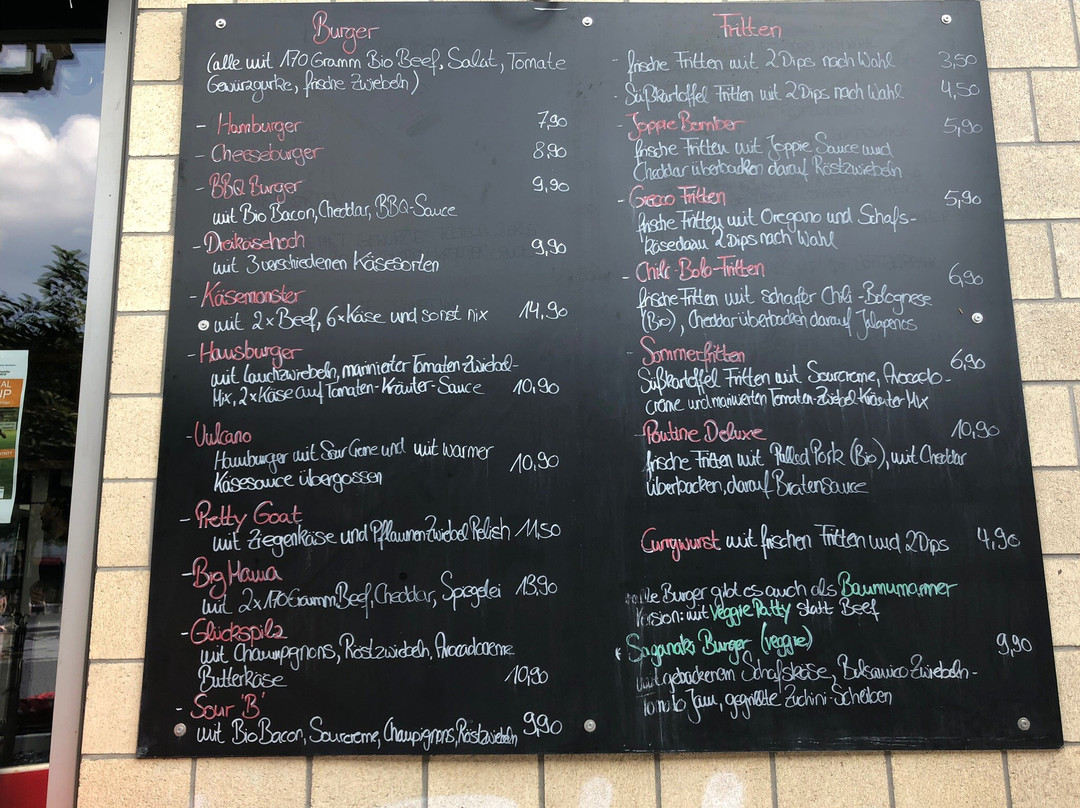 Burger
(alle mit 170 Gramm Bio Beef, Salat, Tomate
Gewürzgurke, frische Zwiebeln)
- Hamburger 7,90
- Cheeseburger 8,90
- BBQ Burger 9,90
mit Bio Bacon, Cheddar, BBQ-Sauce
- Dreikäsehoch
mit 3 verschiedenen Käsesorten 9,90
- Käsemonster
mit 2x Beef, 6x Käse und sonst nix 14,90
- Hausburger
mit Lauchzwiebeln, marinierter Tomaten-Zwiebel-
Mix, 2x Käse auf Tomaten-Kräuter-Sauce 10,90
- Vulcano
Hamburger mit Sour Creme und mit warmer
Käsesauce übergossen 10,90
- Pretty Goat
mit Ziegenkäse und Pflaumen Zwiebel Relish 11,50
- Big Mama
mit 2x170 Gramm Beef, Cheddar, Spiegelei 13,90
- Glückspilz
mit Champignons, Röstzwiebeln, Avocadocreme
Butterkäse 10,90
- Sour 'B'
mit Bio Bacon, Sourcreme, Champignons, Röstzwiebeln 9,90
Fritten
- frische Fritten mit 2 Dips nach Wahl 3,50
- Süßkartoffel Fritten mit 2 Dips nach Wahl 4,50
- Joppie Bomber 5,90
frische Fritten mit Joppie Sauce und
Cheddar überbacken darauf Röstzwiebeln
- Greco Fritten 5,90
frische Fritten mit Oregano und Schafs-
käse dazu 2 Dips nach Wahl
- Chili-Bolo-Fritten 6,90
frische Fritten mit scharfer Chili-Bolognese
(Bio), Cheddar überbacken darauf Jalapenos
- Sommerfritten 6,90
Süßkartoffel Fritten mit Sourcreme, Avocado-
creme und marinierten Tomaten-Zwiebel-Kräuter Mix
- Poutine Deluxe 10,90
frische Fritten mit Pulled Pork (Bio), mit Cheddar
überbacken, darauf Bratensauce
Currywurst mit frischen Fritten und 2 Dips 4,90
Burger gibt es auch als Baumumarmer
Version: mit Veggie Patty statt Beef
Saganaki Burger (veggie) 9,90
mit gebackenem Schafskäse, Balsamico Zwiebeln-
Tomato Jam, gegrillte Zuchini-Scheiben